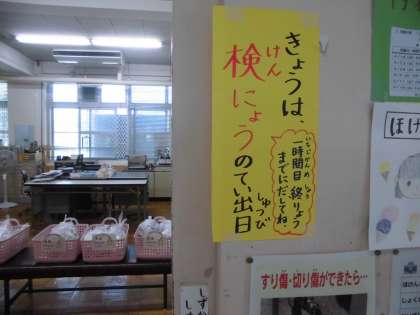 きょうは、
検にょうのてい出日
けん
しゅつび
いちじかんめ しゅう
一時間目 終りょう
までにだしてね。
すり傷・切り傷ができたら…
ほけ
しずか